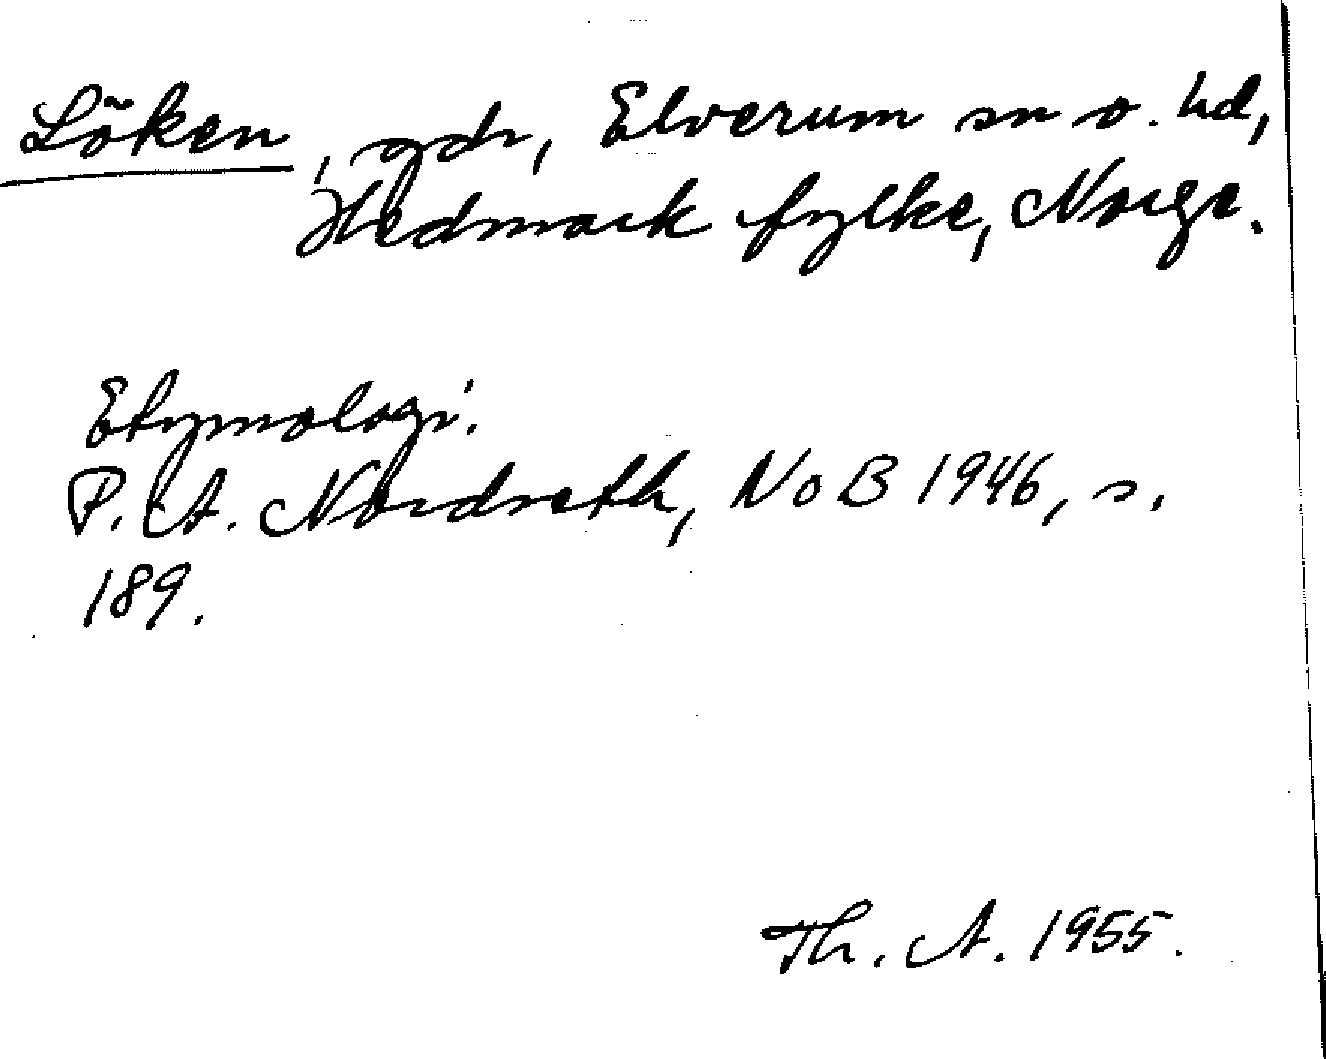 Löken, gdr, Elverum sn o. hd,
Hedmark fylke, Norge.
Etymologi.
P. A. Nordseth, NoB 1946, s.
189.
Th. A. 1955.